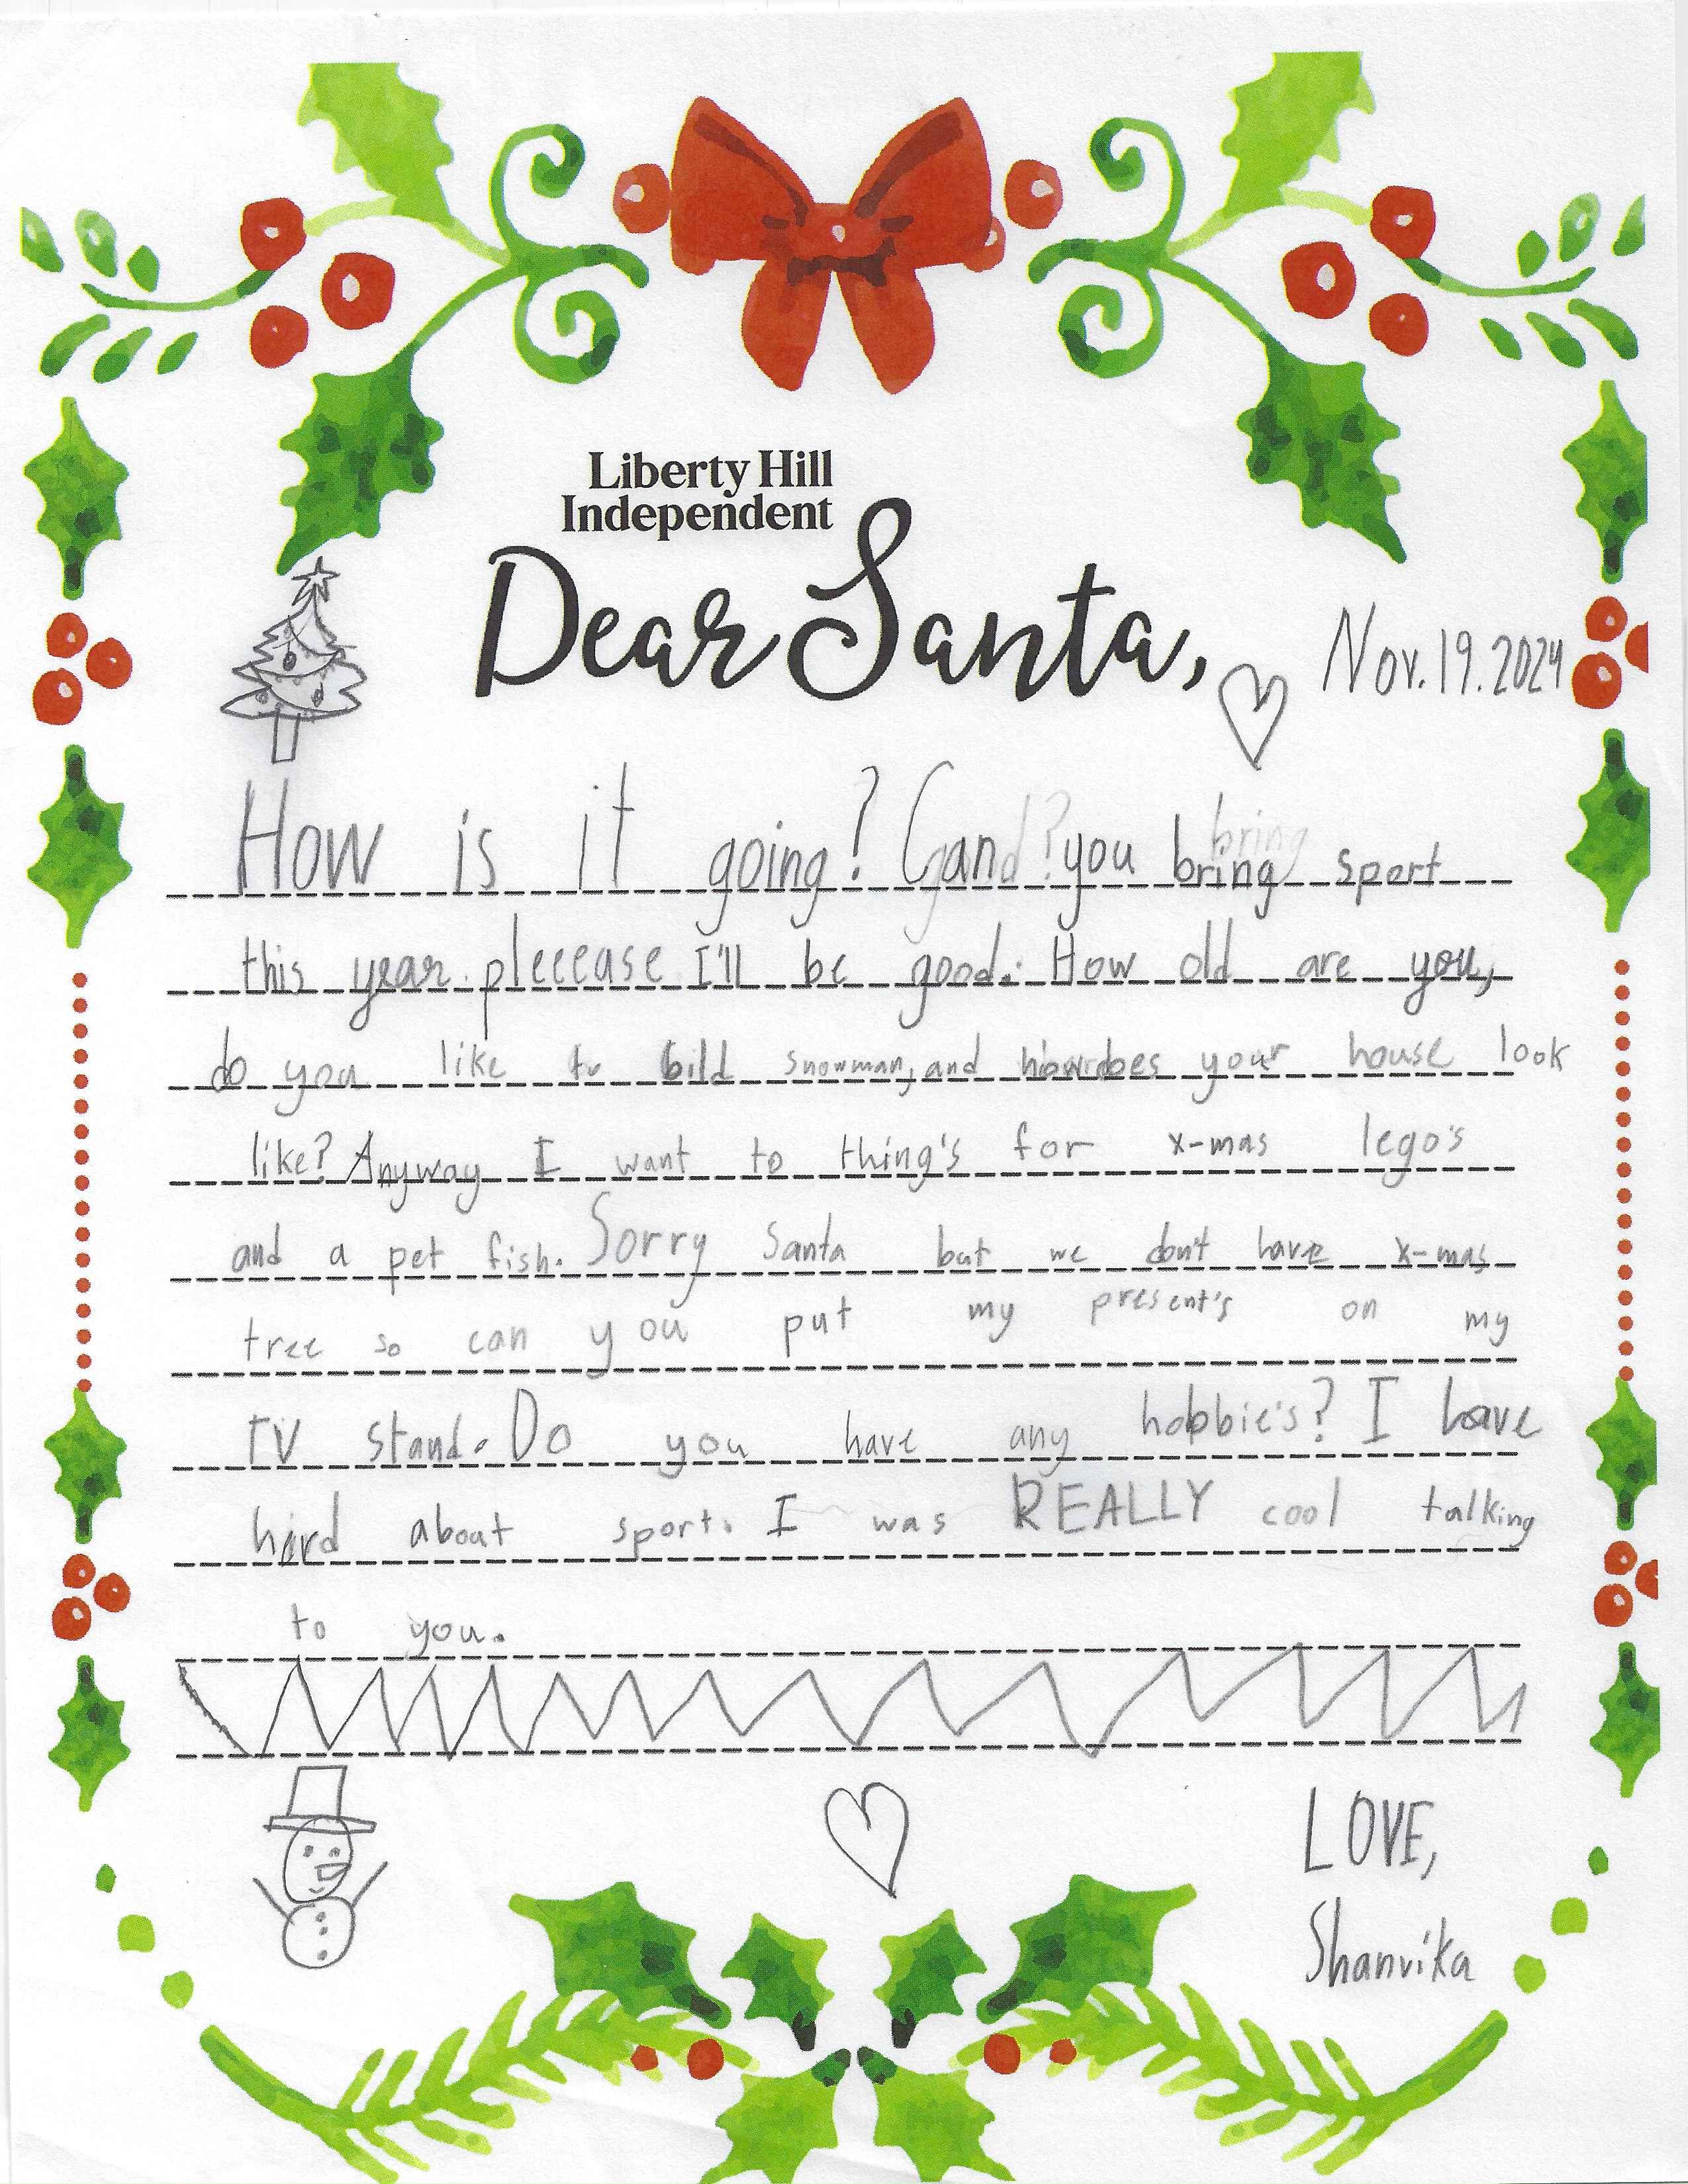 Liberty Hill
Independent
Dear Santa,
Nov.19.2024
How is it going? Can you bring sport
this year. pleeease I'll be good. How old are you,
do you like to bild snowman, and how does your house look
like? Anyway I want to thing's for x-mas lego's
and a pet fish. Sorry Santa but we don't have x-mas
tree so can you put my present's on my
TV stand. Do you have any hobbie's? I have
hird about sport. I was REALLY cool talking
to you.
LOVE,
Shanvika